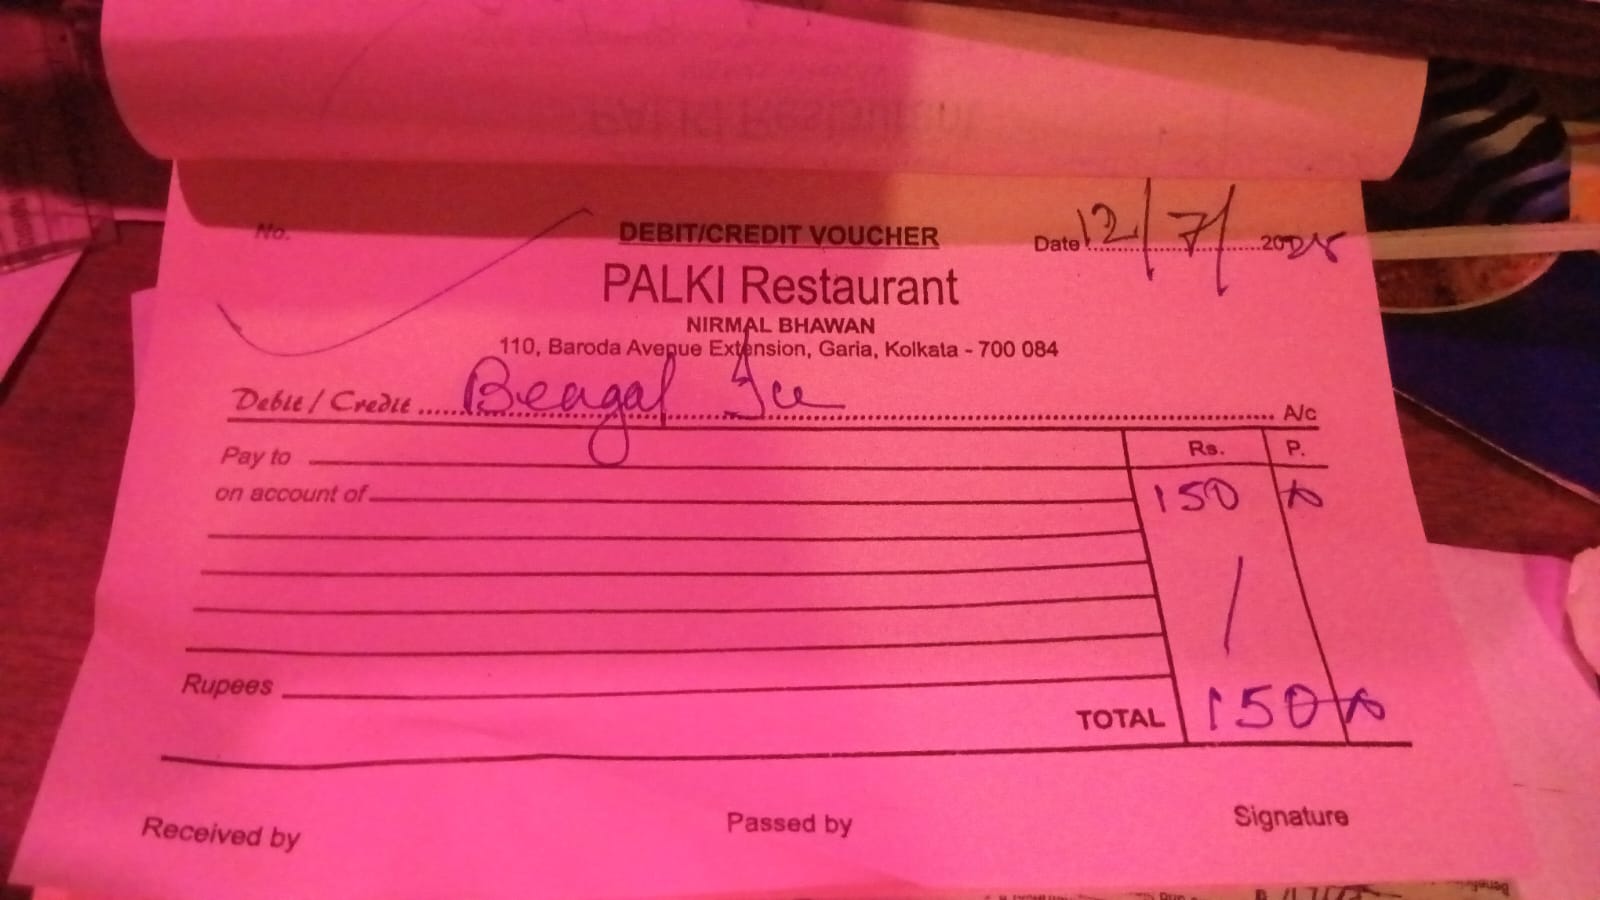 No.
DEBIT/CREDIT VOUCHER
Date 12/7/2025
PALKI Restaurant
NIRMAL BHAWAN
110, Baroda Avenue Extension, Garia, Kolkata - 700 084
Debit / Credit Bengal Ice A/c
Rs. P.
Pay to
on account of 150
Rupees
TOTAL 150
Received by Passed by Signature